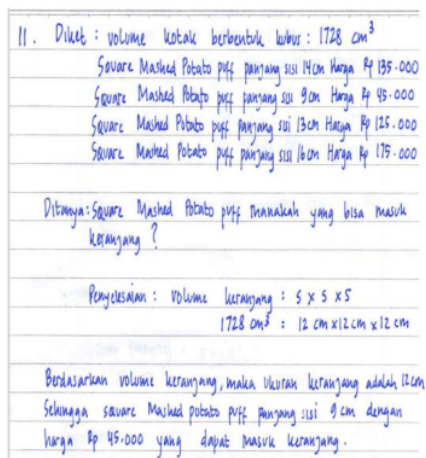 11. Diket : volume kotak berbentuk kubus : 1728 cm³
Square Mashed Potato puff panjang sisi 14cm Harga Rp 135.000
Square Mashed Potato puff panjang sisi 9cm Harga Rp 45.000
Square Mashed Potato puff panjang sisi 13cm Harga Rp 125.000
Square Mashed Potato puff panjang sisi 16cm Harga Rp 175.000
Ditanya : Square Mashed Potato puff manakah yang bisa masuk
keranjang ?
Penyelesaian : volume keranjang : s x s x s
1728 cm³ : 12 cm x 12 cm x 12 cm
Berdasarkan volume keranjang, maka ukuran keranjang adalah 12cm
Sehingga square Mashed potato puff panjang sisi 9 cm dengan
harga Rp 45.000 yang dapat masuk keranjang.